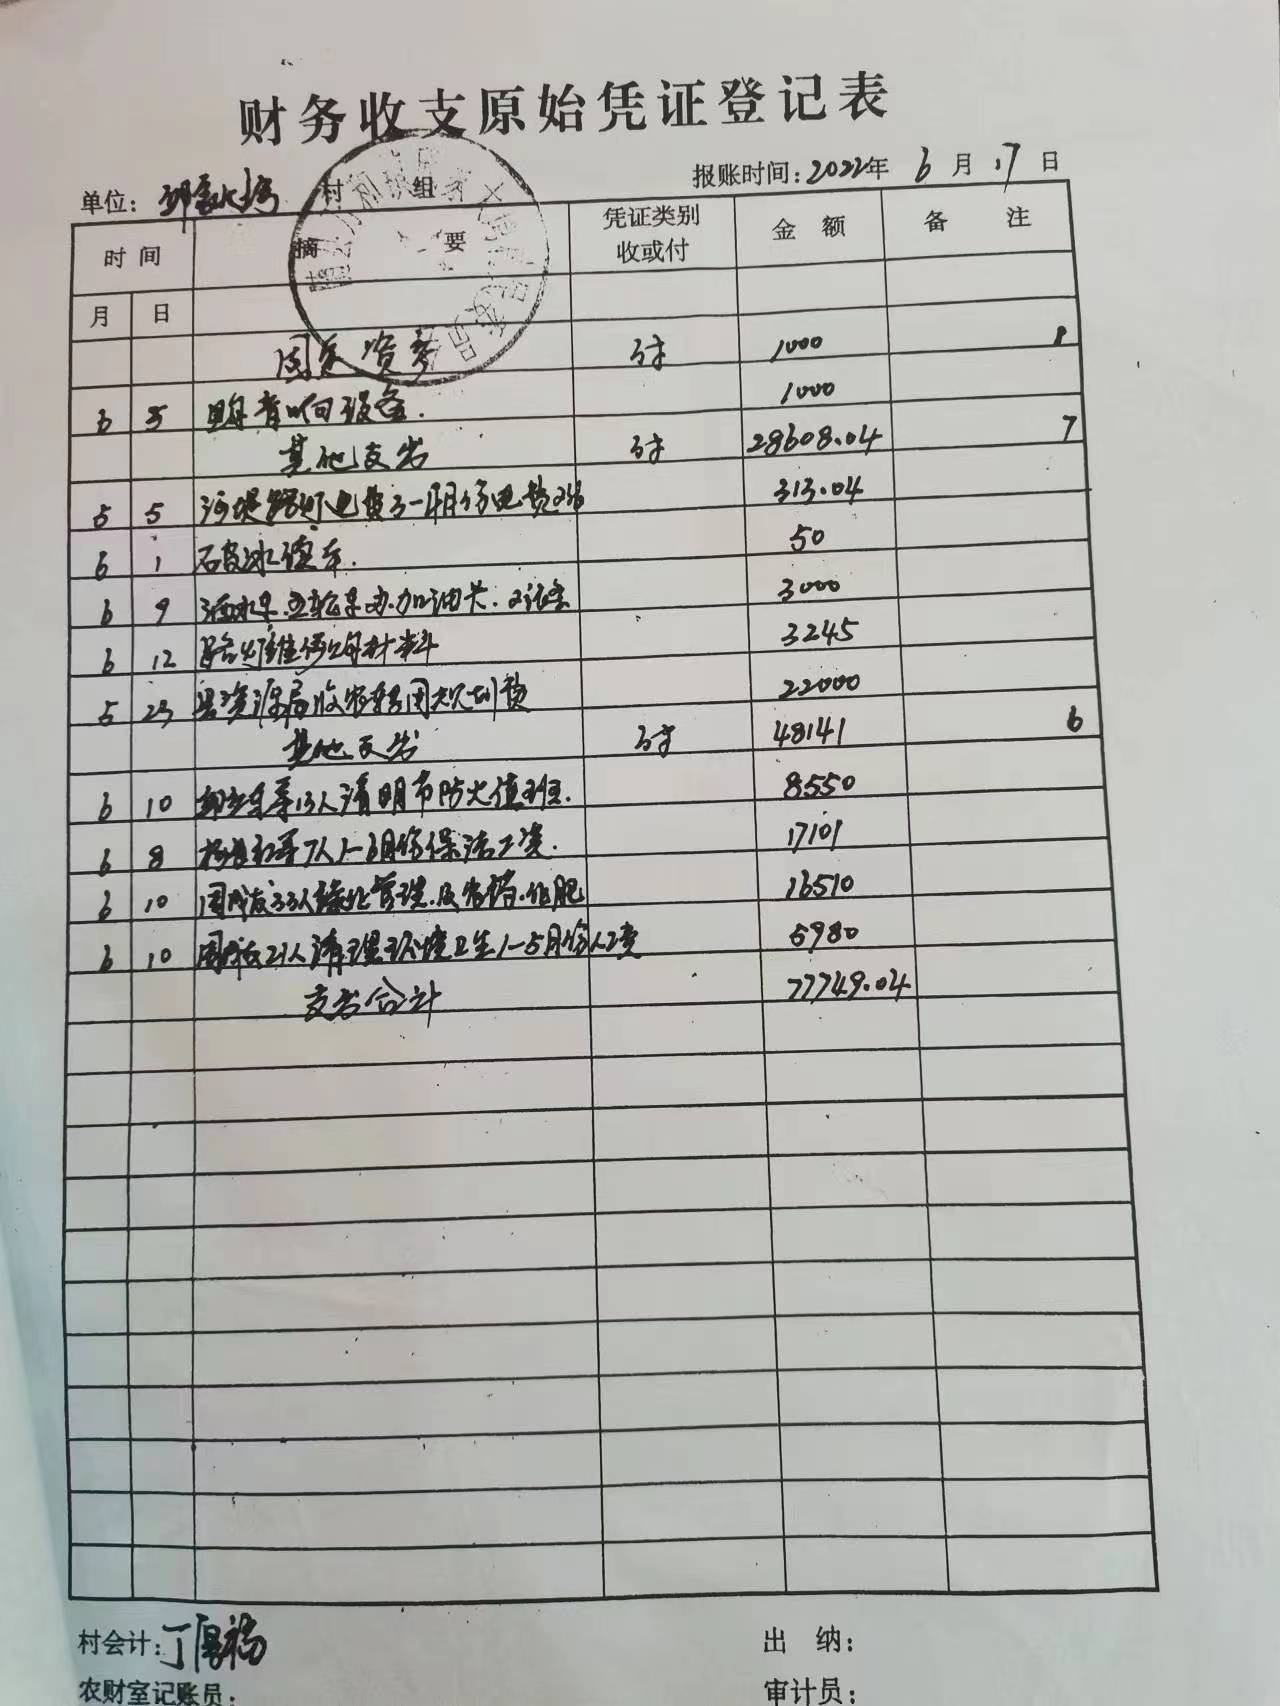 财务收支原始凭证登记表
单位: 村 组 报账时间:2022年 6月17日
时间 摘 要 凭证类别 收或付 金 额 备 注
月 日
固定资产 付 1000 1
6 5 购音响设备. 1000
其他支出 付 28608.04 7
5 5 河堤路灯电费3-4月份电费 313.04
6 1 修车. 50
6 9 洒水车. 办.加油卡. 3000
6 12 路灯维修 材料 3245
5 23 县资源局收 规划费 22000
其他支出 付 48141 6
6 10 等13人清明节防火值班. 8550
6 8 等7人1-6月份保洁工资. 17101
6 10 33人 管理.及 .化肥 16510
6 10 21人清理环境卫生1-5月份人工费 5980
支出合计 77749.04
村会计:丁 福 出 纳:
农财室记账员: 审计员: